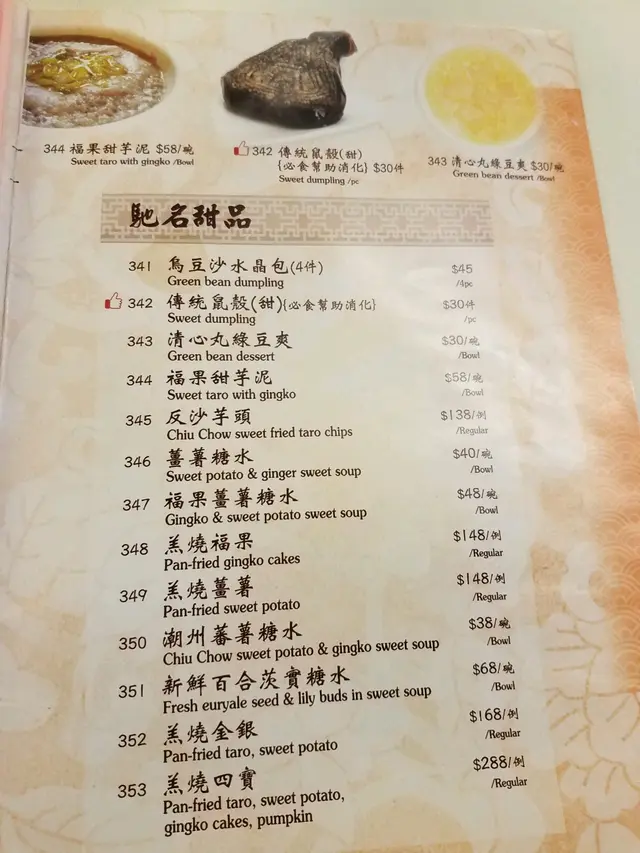 344 福果甜芋泥 $58/碗
Sweet taro with gingko /Bowl
342 傳統鼠殼(甜)
{必食幫助消化} $30件
Sweet dumpling /pc
343 清心丸綠豆爽 $30/碗
Green bean dessert /Bowl
馳名甜品
341 烏豆沙水晶包(4件) $45
Green bean dumpling /4pc
342 傳統鼠殼(甜){必食幫助消化} $30件
Sweet dumpling /pc
343 清心丸綠豆爽 $30/碗
Green bean dessert /Bowl
344 福果甜芋泥 $58/碗
Sweet taro with gingko /Bowl
345 反沙芋頭 $138/例
Chiu Chow sweet fried taro chips /Regular
346 薑薯糖水 $40/碗
Sweet potato & ginger sweet soup /Bowl
347 福果薑薯糖水 $48/碗
Gingko & sweet potato sweet soup /Bowl
348 羔燒福果 $148/例
Pan-fried gingko cakes /Regular
349 羔燒薑薯 $148/例
Pan-fried sweet potato /Regular
350 潮州蕃薯糖水 $38/碗
Chiu Chow sweet potato & gingko sweet soup /Bowl
351 新鮮百合茨實糖水 $68/碗
Fresh euryale seed & lily buds in sweet soup /Bowl
352 羔燒金銀 $168/例
Pan-fried taro, sweet potato /Regular
353 羔燒四寶 $288/例
Pan-fried taro, sweet potato, /Regular
gingko cakes, pumpkin